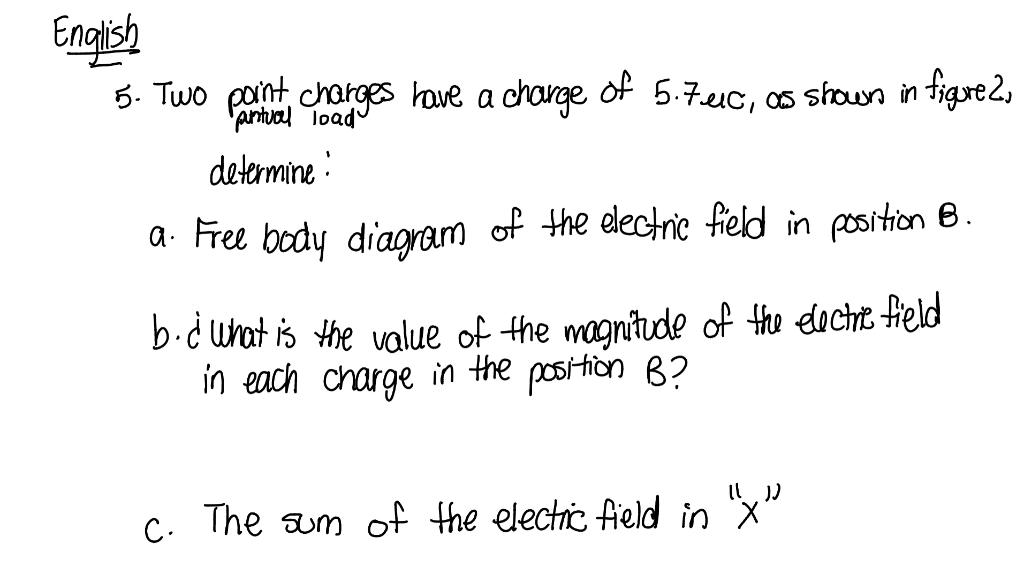 English
5. Two point charges have a charge of 5.7 uc, as shown in figure 2,
puntual load
determine:
a. Free body diagram of the electric field in position B.
b. ¿What is the value of the magnitude of the electric field
in each charge in the position B?
c. The sum of the electric field in "x"